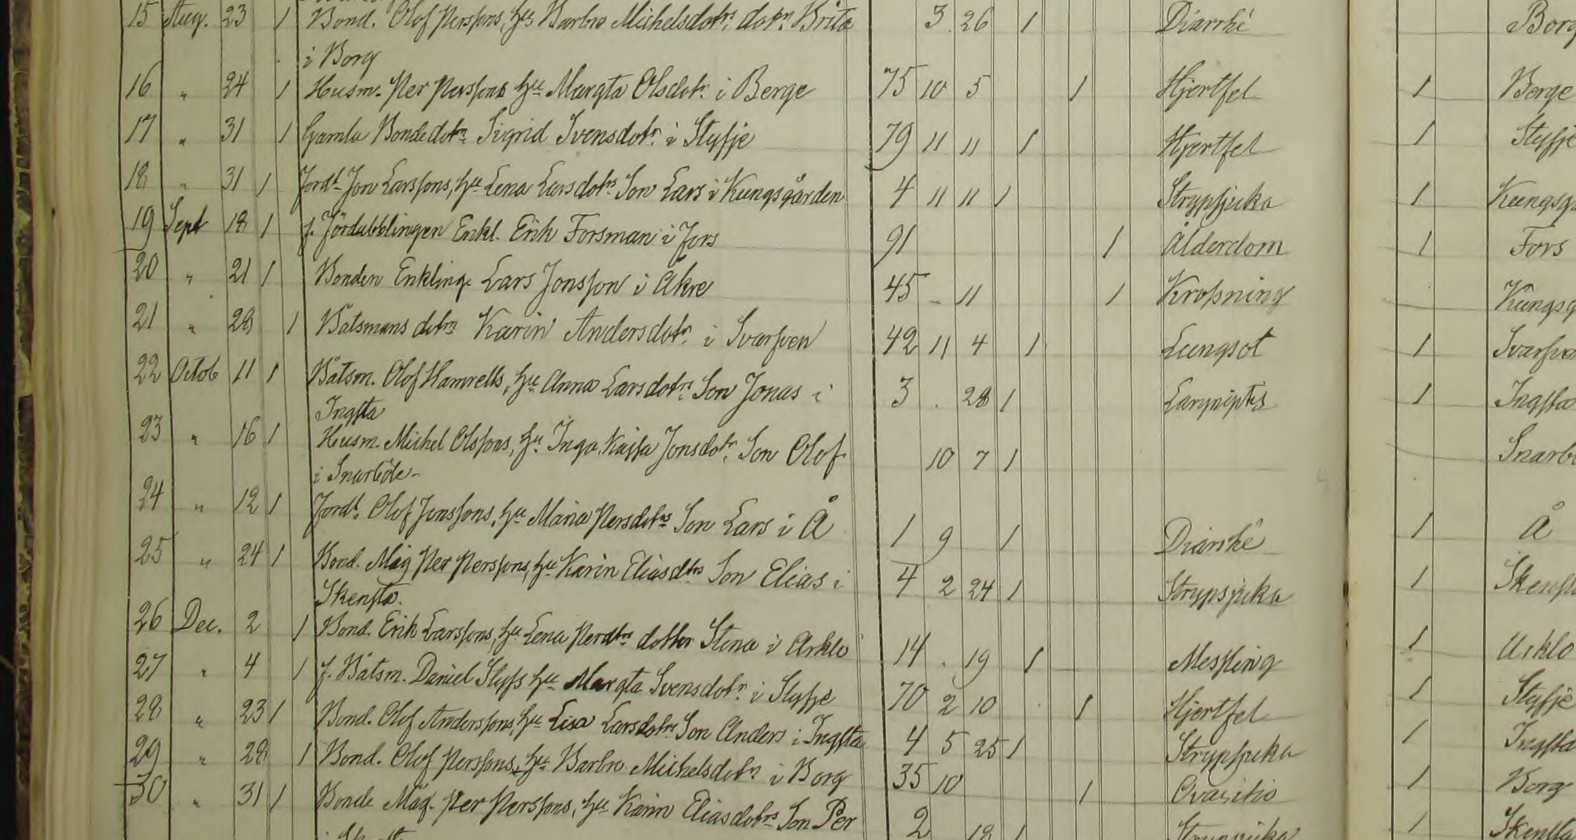 15 Aug. 23 1 Bond. Olof Perssons, hu Barbro Michelsdotrs dotr. Brita 3 26 1 Diarrhé Borg
i Borg
16 " 24 1 Husm. Per Perssons hu Margta Olsdotr i Berge 75 10 5 1 Hjertfel 1 Berge
17 " 31 1 Gamla Bondedotr Sigrid Svensdotr i Styfje 79 11 11 1 Hjertfel 1 Styfje
18 " 31 1 Jordt. Jon Larssons, hu Lena Larsdotrs Son Lars i Kungsgården 4 11 11 1 Strypsjuka 1 Kungsg
19 Sept 18 1 f. Enkl. Erik Forsman i Fors 91 1 Ålderdom 1 Fors
20 " 21 1 Bonden Enkling. Lars Jonsson i Åkre 45 - 11 1 Krossning Kungsg
21 " 28 1 Båtsmans dotrn Karin Andersdotr. i Svarfven 42 11 4 1 Lungsot 1 Svarfve
22 Octob 11 1 Båtsm. Olof Hamrells, hu Anna Larsdotrs Son Jonas i 3 . 28 1 1 Ingsta
Ingsta
23 " 16 1 Husm. Michel Olssons, hu Inga Kajsa Jonsdotr. Son Olof 10 7 1 Snarb
i Snarböle
24 " 12 1 Jordt. Olof Jonssons, hu Maria Persdotrs Son Lars i Å 1 9 1 Diarrhé 1 Å
25 " 24 1 Bond. Måg Per Perssons, hu Karin Eliasdtrs Son Elias i 4 2 24 1 Strypsjuka 1 Skenst
Skensta.
26 Dec. 2 1 Bond. Erik Larssons, hu Lena Perdtrs dotter Stina i Arklo 14 . 19 1 Messling 1 Arklo
27 " 4 1 f. Båtsm. Daniel Styfs hu Margta Svensdotr. i Styfje 70 2 10 1 Hjertfel 1 Styfje
28 " 23 1 Bond. Olof Anderssons, hu Lisa Larsdotrs Son Anders i Ingsta 4 5 25 1 Strypsjuka 1 Ingsta
29 " 28 1 Bond. Olof Perssons, hu Barbro Michelsdotr i Borg 35 10 1 1 Borg
30 " 31 1 Bonde Måg. Per Perssons, hu Karin Eliasdotrs Son Per 2 18 1 Strypsjuka 1 Skensta